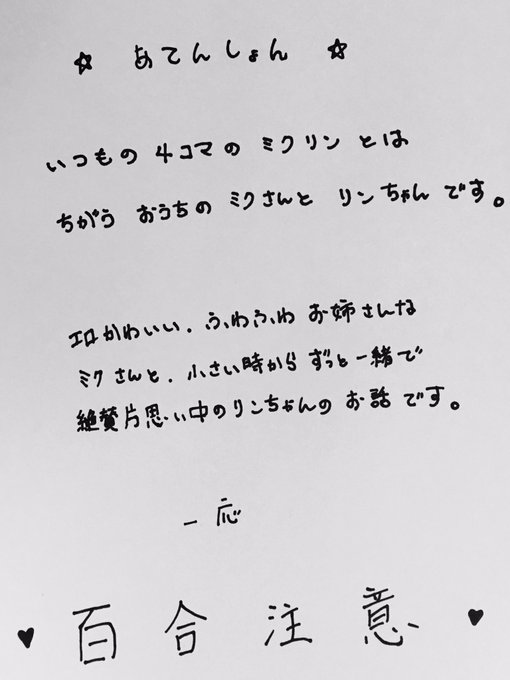 ☆ あてんしょん ☆
いつもの 4コマの ミクリン とは
ちがう おうちの ミクさんと リンちゃん です。
エロかわいい、ふわふわ お姉さんな
ミクさんと、小さい時から ずっと一緒で
絶賛片思い中のリンちゃんの お話です。
一応
♥ 百合注意 ♥